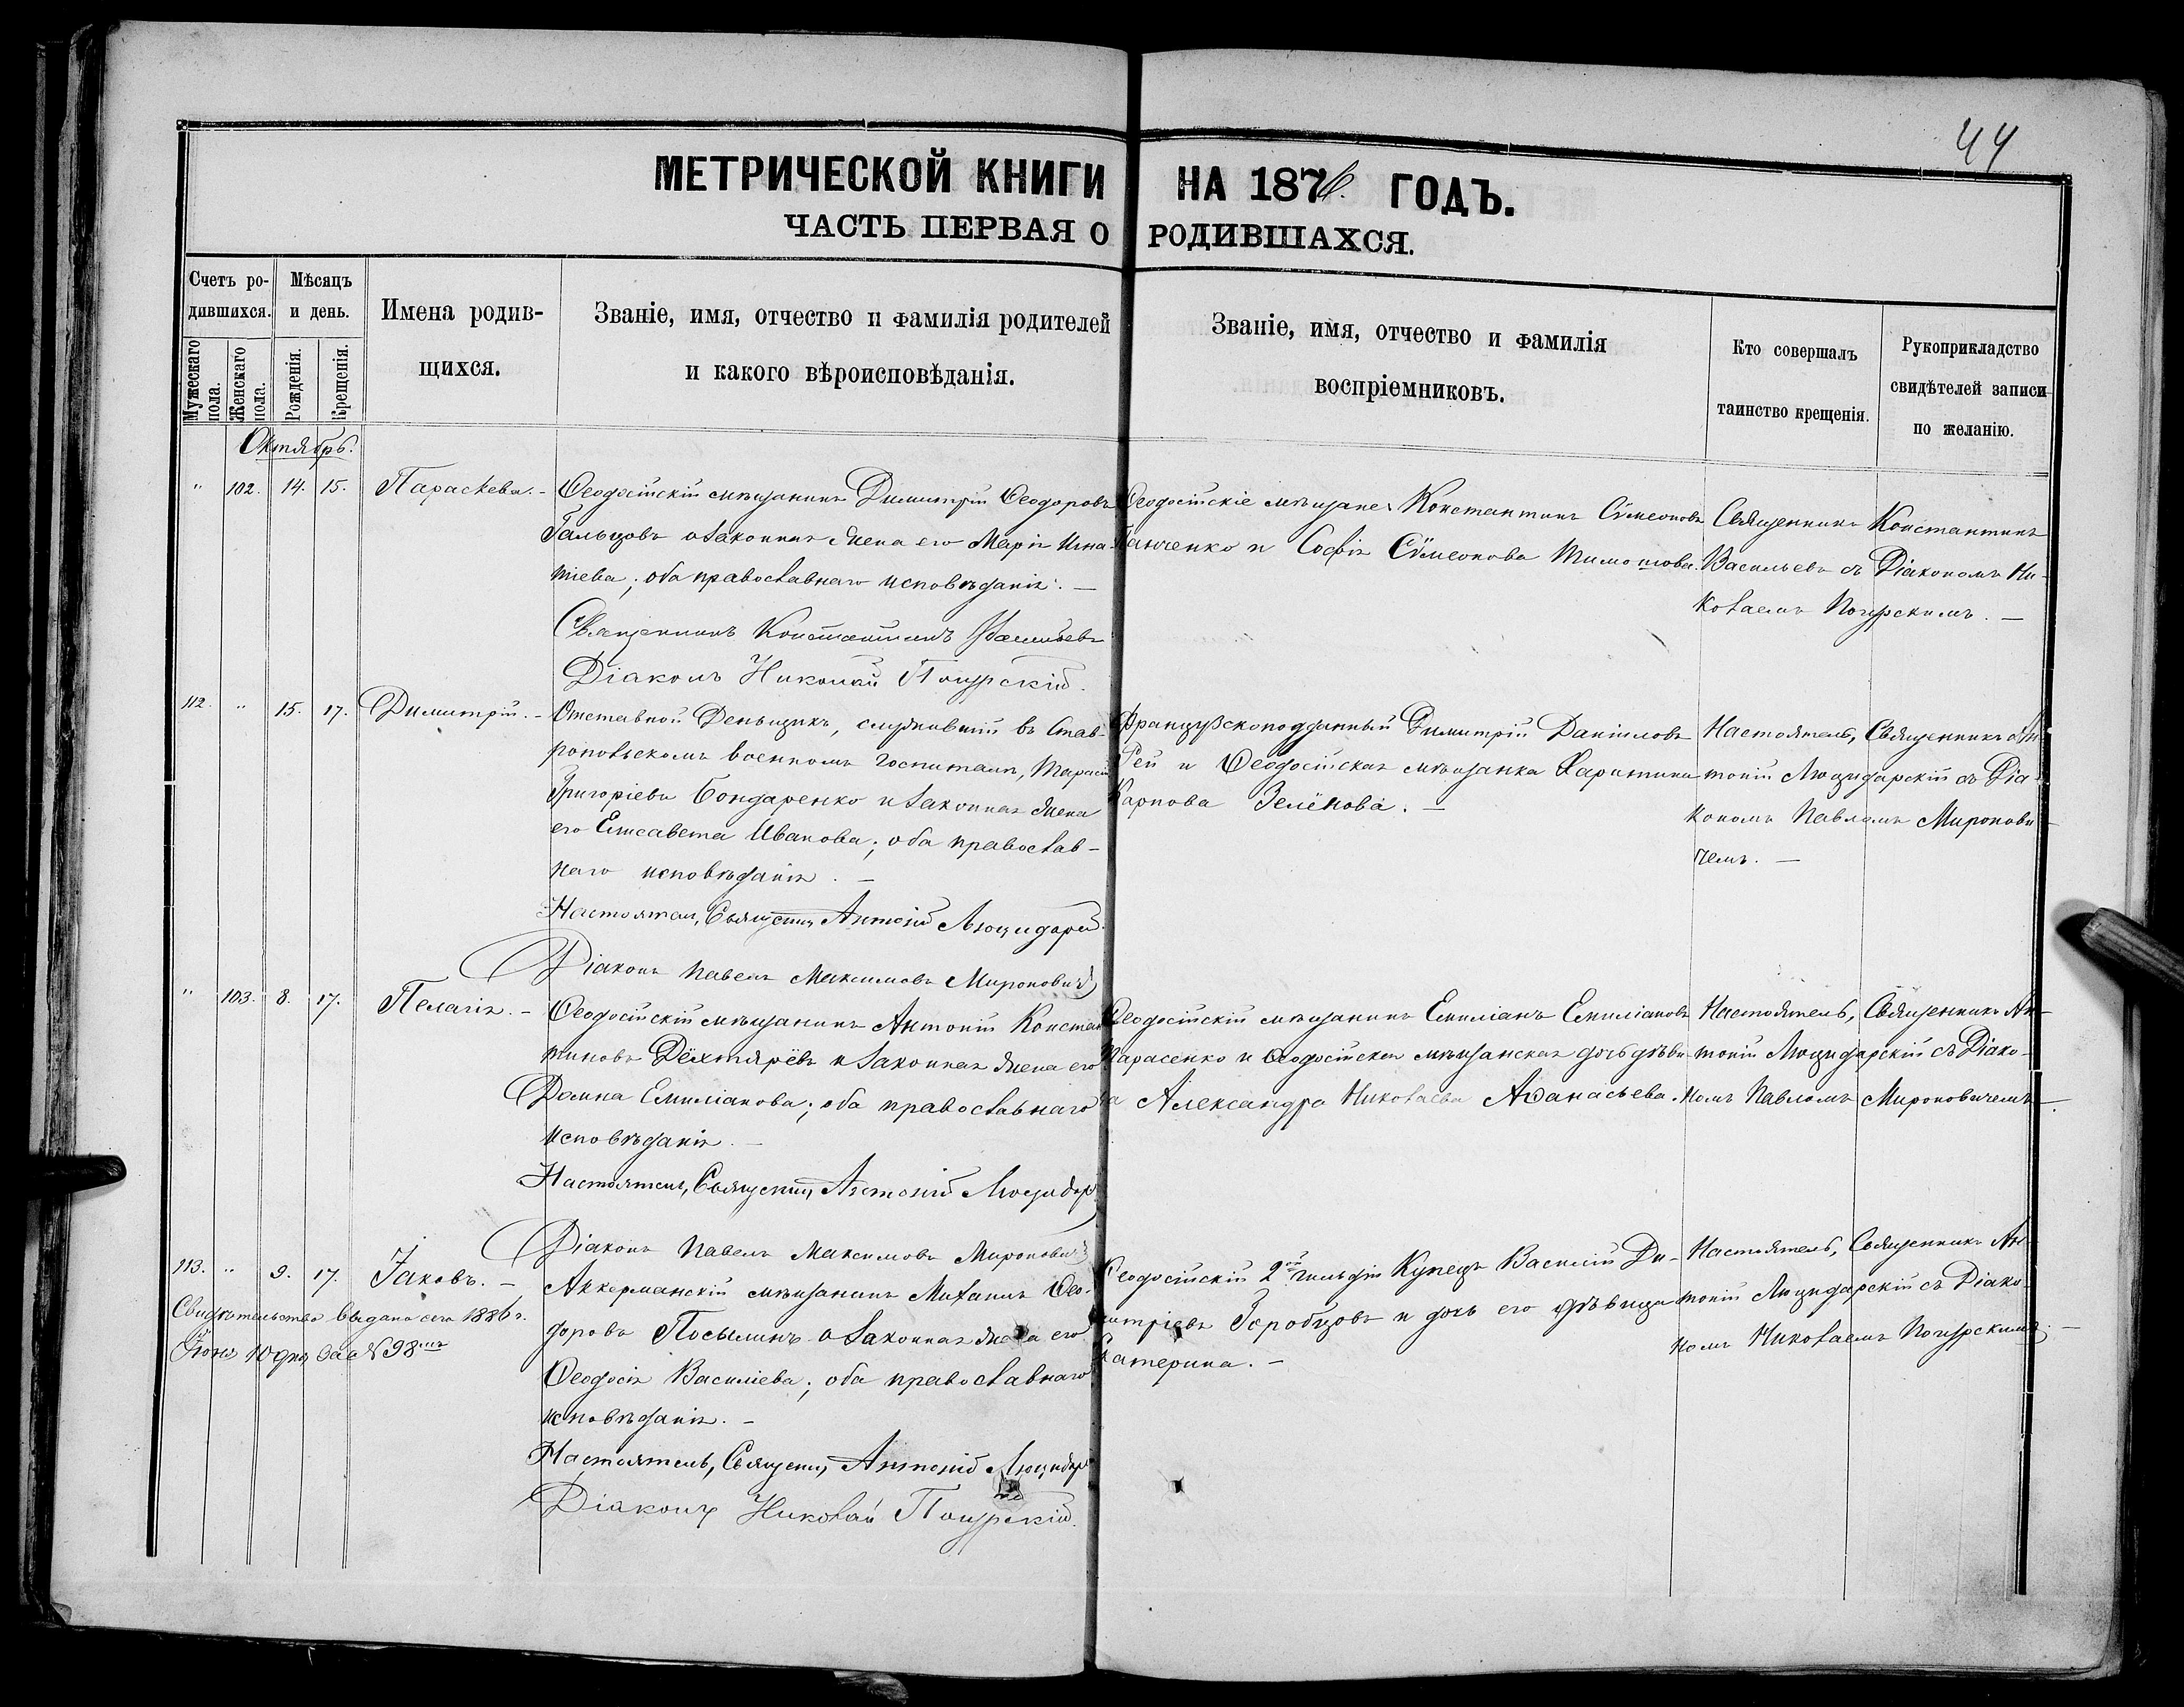 44
МЕТРИЧЕСКОЙ КНИГИ НА 1876. ГОДЪ.
ЧАСТЬ ПЕРВАЯ О РОДИВШАХСЯ.
Счетъ ро-
дившихся.
Мужескаго пола.
Женскаго пола.
Мѣсяцъ
и день.
Рожденія.
Крещенія.
Имена родив-
щихся.
Званіе, имя, отчество и фамилія родителей
и какого вѣроисповѣданія.
Званіе, имя, отчество и фамилія
воспріемниковъ.
Кто совершалъ
таинство крещенія.
Рукоприкладство
свидѣтелей записи
по желанію.
Октябрь.
" 102. 14. 15. Параскева. -
Ѳеодосійскій мѣщанинъ Димитрій Ѳеодоровъ
Гальцовъ и законная жена его Марія Игна-
тіева; оба православнаго исповѣданія. —
Священникъ Константинъ Васильевъ
Діаконъ Николай Погурскій.
Ѳеодосійскіе мѣщане: Константинъ Сѵмеоновъ
Панченко и Софія Сѵмеонова Тимошова.
Священникъ Константинъ
Васильевъ съ Діакономъ Ни-
колаемъ Погурскимъ. —
112. " 15. 17. Димитрій. -
Отставной Деньщикъ, служившій въ Став-
ропольскомъ военномъ госпиталѣ, Тарасій
Григоріевъ Бондаренко и законная жена
его Елисавета Иванова; оба православ-
наго исповѣданія. —
Настоятель, Священникъ Антоній Люцидарскій.
Діаконъ Павелъ Максимовъ Мироновичъ
Французскоподданный Димитрій Даніиловъ
Рей и Ѳеодосійская мѣщанка Харитина
Карпова Зелёнова. —
Настоятель, Священникъ Ан-
тоній Люцидарскій съ Діа-
кономъ Павломъ Миронови-
чемъ. —
" 103. 8. 17. Пелагія. -
Ѳеодосійскій мѣщанинъ Антоній Констан-
тиновъ Дёхтярёвъ и законная жена его
Домна Емиліанова; оба православнаго
исповѣданія. —
Настоятель, Священникъ Антоній Люцидар
Діаконъ Павелъ Максимовъ Мироновичъ
Ѳеодосійскій мѣщанинъ Емиліанъ Емиліановъ
Тарасенко и Ѳеодосійская мѣщанская дочь дѣви-
ца Александра Николаева Аѳанасьева.
Настоятель, Священникъ Ан-
тоній Люцидарскій съ Діако-
номъ Павломъ Мироновичемъ. —
113. " 9. 17. Іаковъ. -
Свидѣтельство выдано сего 1886 г.
Іюня 10 дня за № 98мъ
Аккерманскій мѣщанинъ Михаилъ Ѳео-
доровъ Посылинъ и законная жена его
Ѳеодосія Василіева; оба православнаго
исповѣданія. —
Настоятель, Священникъ Антоній Люцидар
Діаконъ Николай Погурскій.
Ѳеодосійскій 2ой гильдіи Купецъ Василій Ди-
митріевъ Горобцовъ и дочь его дѣвица
Катерина. —
Настоятель, Священникъ Ан-
тоній Люцидарскій съ Діако-
номъ Николаемъ Погурскимъ. —